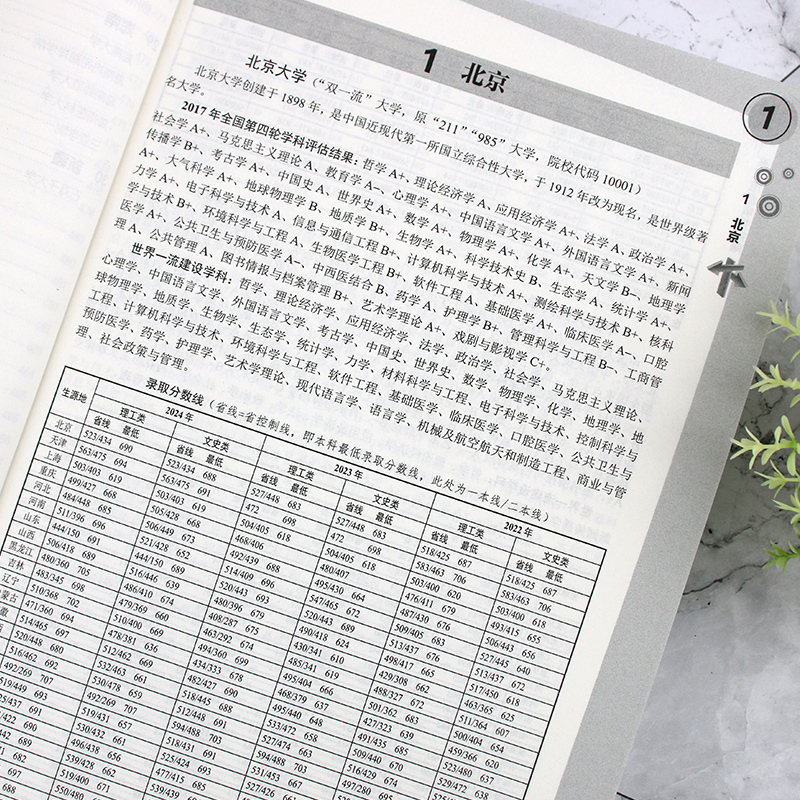 1 北京
1
1
北京
北京大学（“双一流”大学，原“211”“985”大学，院校代码10001）
北京大学创建于1898年，是中国近现代第一所国立综合性大学，于1912年改为现名，是世界级著
名大学。
2017年全国第四轮学科评估结果：哲学A+、理论经济学A、应用经济学A+、法学A、政治学A+、
社会学A+、马克思主义理论A、教育学A-、心理学A+、中国语言文学A+、外国语言文学A+、新闻
传播学B+、考古学A+、中国史A、世界史A+、数学A+、物理学A+、化学A+、天文学B-、地理学
A+、大气科学A+、地球物理学B、地质学B+、生物学A+、科学技术史B、生态学A、统计学A+、
力学A+、电子科学与技术A、信息与通信工程B+、计算机科学与技术A+、测绘科学与技术B+、核科
学与技术B+、环境科学与工程A、生物医学工程B+、软件工程A、基础医学A+、临床医学A-、口腔
医学A+、公共卫生与预防医学A-、中西医结合B、药学A、护理学B+、管理科学与工程B-、工商管
理A、公共管理A、图书情报与档案管理B+、艺术学理论A+、戏剧与影视学C+。
世界一流建设学科：哲学、理论经济学、应用经济学、法学、政治学、社会学、马克思主义理论、
心理学、中国语言文学、外国语言文学、考古学、中国史、世界史、数学、物理学、化学、地理学、地
球物理学、地质学、生物学、生态学、统计学、力学、材料科学与工程、电子科学与技术、控制科学与
工程、计算机科学与技术、环境科学与工程、软件工程、基础医学、临床医学、口腔医学、公共卫生与
预防医学、药学、护理学、艺术学理论、现代语言学、语言学、机械及航空航天和制造工程、商业与管
理、社会政策与管理。
录取分数线（省线=省控制线，即本科最低录取分数线，此处为一本线/二本线）
生源地 2024年 2023年 2022年
理工类 文史类 理工类 文史类 理工类 文史类
省线 最低 省线 最低 省线 最低 省线 最低 省线 最低 省线 最低
北京 523/434 690 523/434 688 527/448 683 527/448 683 518/425 687 518/425 687
天津 563/475 694 563/475 691 472 698 472 698 583/463 706 583/463 706
上海 503/403 619 503/403 619 504/405 618 504/405 618 503/400 620 503/400 618
重庆 499/427 668 505/428 668 468/406 480/407 476/411 679 493/415 655
河北 484/448 685 506/449 673 492/439 688 495/430 664 487/430 676 506/443 656
河南 511/396 696 521/428 652 514/409 696 547/465 672 509/405 683 527/445 640
山东 444/150 691 444/150 689 520/443 693 520/443 689 513/437 676 513/437 672
山西 506/418 689 516/446 639 480/396 679 490/418 624 498/417 665 517/450 618
黑龙江 480/360 705 486/410 674 408/287 675 430/341 610 429/308 662 463/365 625
吉林 483/345 698 479/369 660 463/292 674 485/341 619 488/327 672 511/364 607
辽宁 510/368 702 510/400 669 494/360 699 495/404 666 501/362 683 500/404 654
蒙古 471/360 694 478/381 636 434/333 678 468/379 637 427/323 639 459/366 620
徽 514/465 697 512/462 669 482/427 690 495/440 648 491/435 685 523/480 637
520/448 680 532/463 661 518/445 688 533/472 658 509/440 670 529/472 638
516/462 692 530/478 659 512/448 691 527/463 663 516/429 674
492/269 707 492/269 707 594/488 703 594/488 703 497/280 695
519/449 693 519/431 657 518/431 691 531/453 667
530/432 661 525/424 693 527/426 661
496/438 656 477/415 685
539/428 662 539/439
519/400 671
550/480